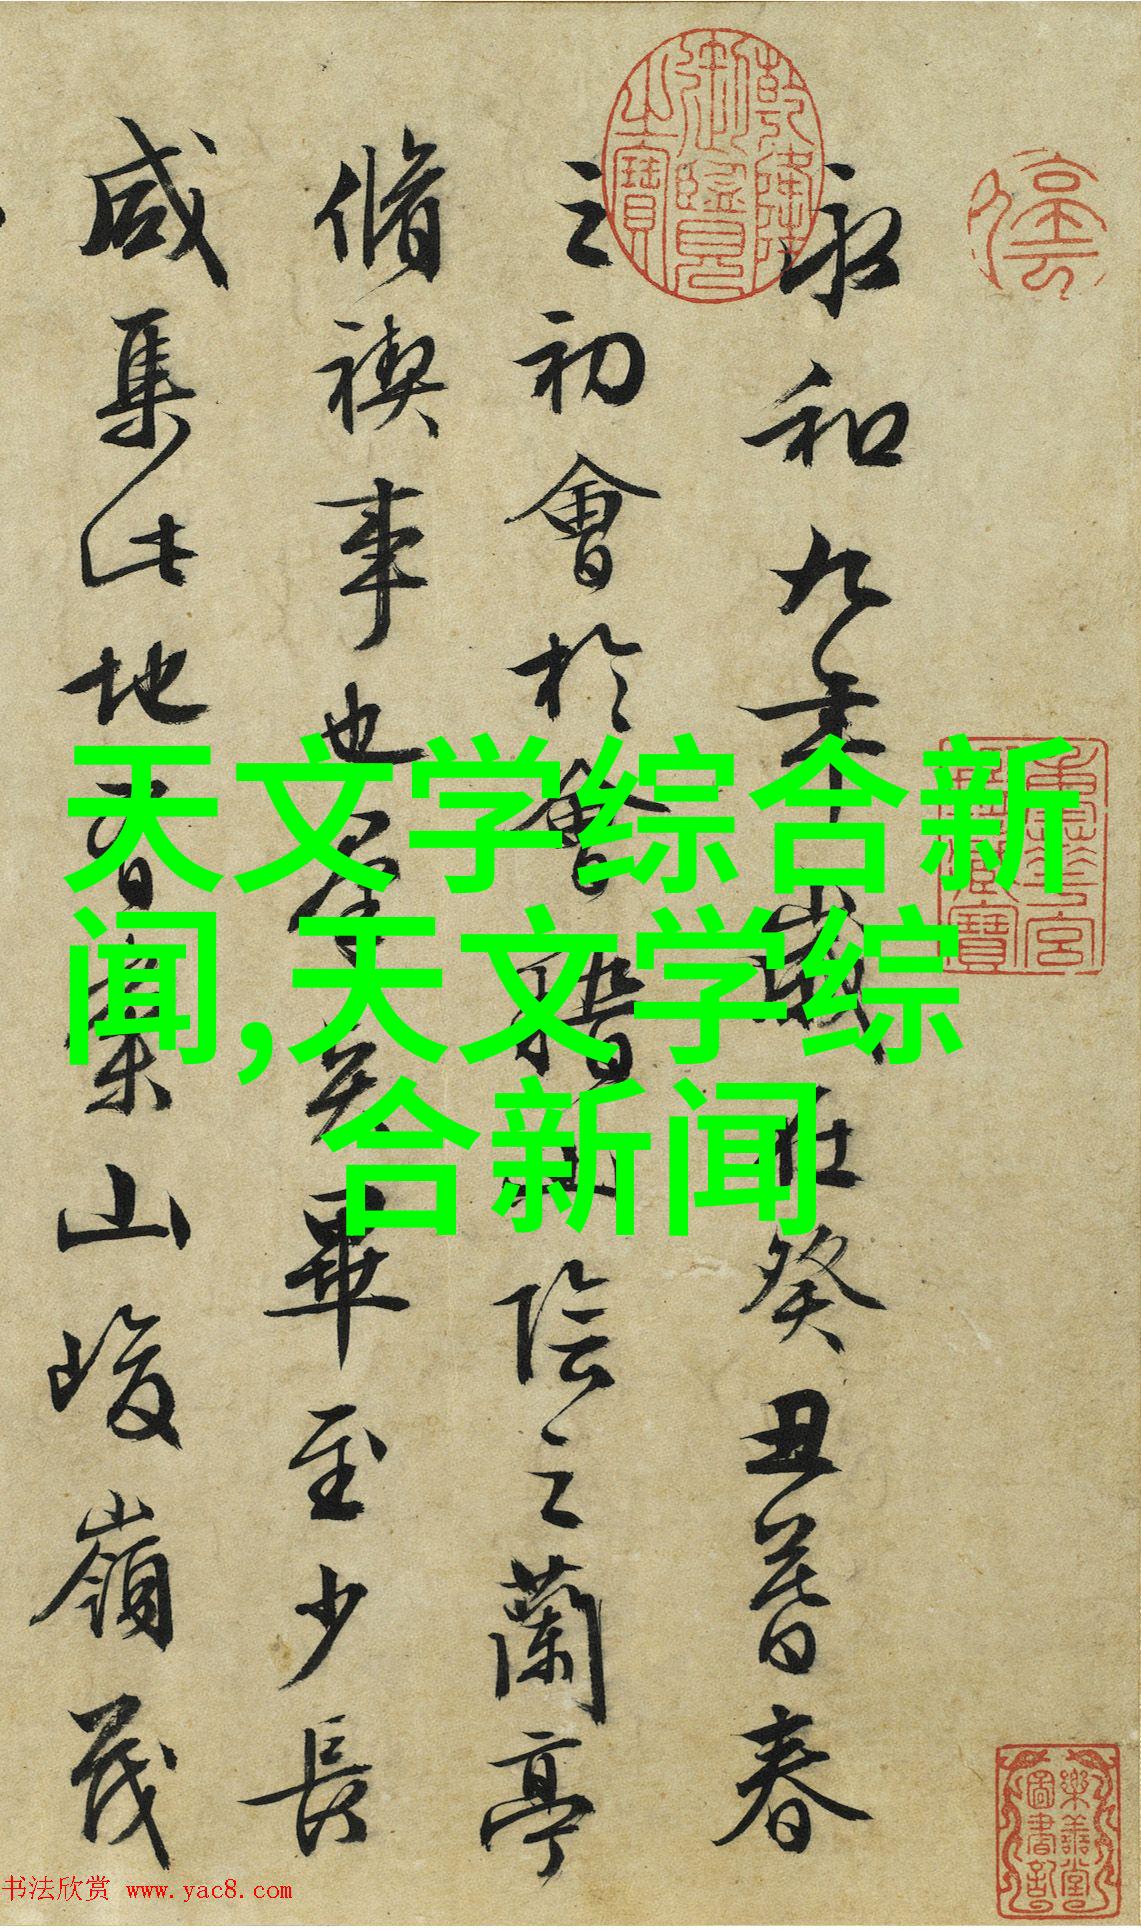 永和九年歲在癸丑暮春
之初會於會稽山陰之蘭亭
脩禊事也羣賢畢至少長
咸集此地有崇山峻嶺茂
乾隆御鑑之寶
樂善堂圖書記
天文学综合新
闻,天文学综
合新闻
书法欣赏 www.yac8.com